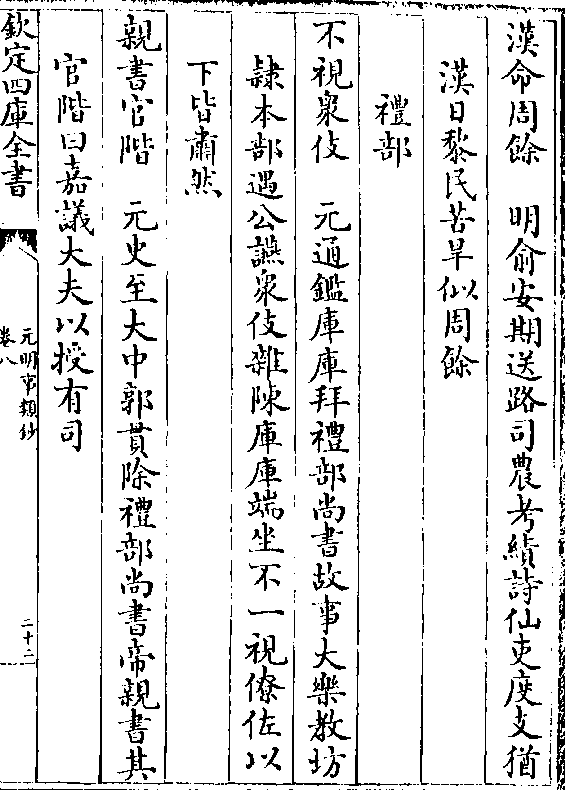 漢命周餘　明俞安期送路司農考績詩仙吏度支猶
漢日黎民苦旱似周餘
禮部
不視衆伎　元通鑑庫庫拜禮部尚書故事大樂教坊
隷本部遇公讌衆伎雜陳庫庫端坐不一視僚佐以
下皆肅然
親書官階　元史至大中郭貫除禮部尚書帝親書其
官階曰嘉議大夫以授有司
欽定四庫全書
元明事類鈔
卷八
二十二